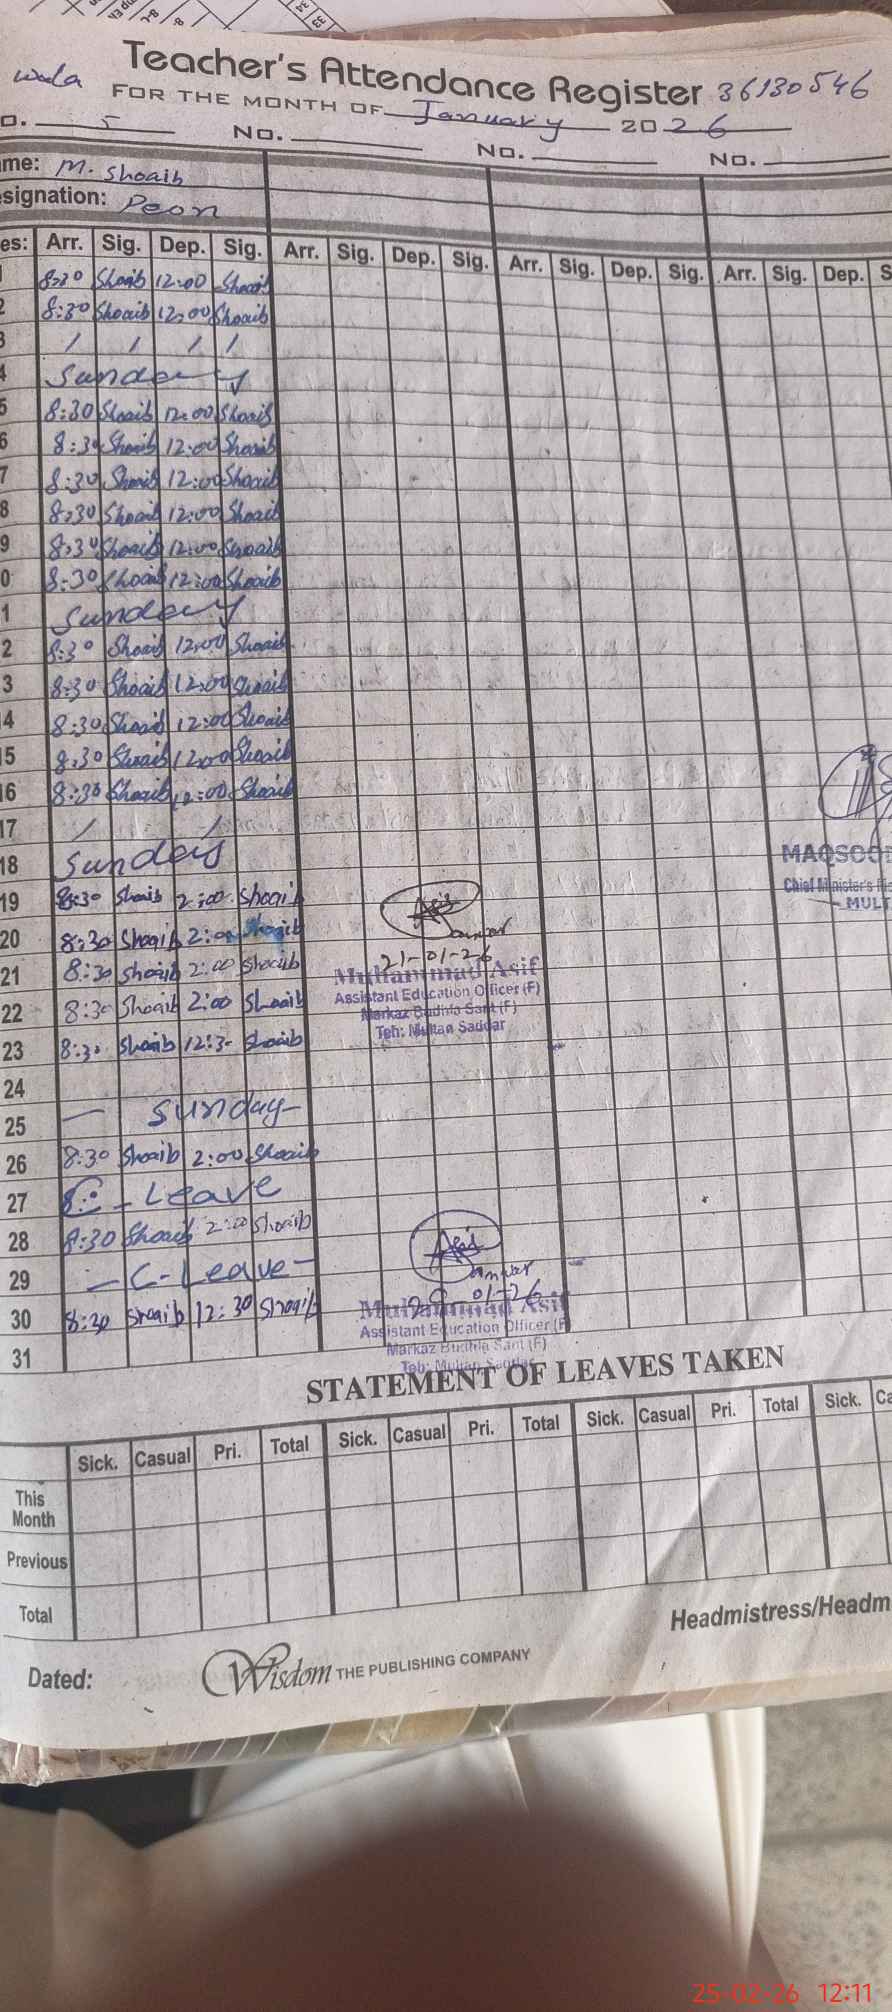 Teacher's Attendance Register 36130546
wala FOR THE MONTH OF January 2026
o. 5 No. No. No.
me: M. Shoaib
signation: Peon
es: Arr. Sig. Dep. Sig. Arr. Sig. Dep. Sig. Arr. Sig. Dep. Sig. Arr. Sig. Dep. S
1 8:30 Shoaib 12:00 Shoaib
2 8:30 Shoaib 12:00 Shoaib
3 / / / /
4 Sunday
5 8:30 Shoaib 12:00 Shoaib
6 8:30 Shoaib 12:00 Shoaib
7 8:30 Shoaib 12:00 Shoaib
8 8:30 Shoaib 12:00 Shoaib
9 8:30 Shoaib 12:00 Shoaib
0 8:30 Shoaib 12:00 Shoaib
1 Sunday
2 8:30 Shoaib 12:00 Shoaib
3 8:30 Shoaib 12:00 Shoaib
4 8:30 Shoaib 12:00 Shoaib
15 8:30 Shoaib 12:00 Shoaib
16 8:30 Shoaib 12:00 Shoaib
17 / /
18 Sunday
MAQSOO
Chief Minister's
MULT
19 8:30 Shoaib 2:00 Shoaib
20 8:30 Shoaib 2:00 Shoaib
21 8:30 Shoaib 2:00 Shoaib
22 8:30 Shoaib 2:00 Shoaib
23 8:30 Shoaib 12:3- Shoaib
21-01-26
Muhammad Asif
Assistant Education Officer (F)
Markaz Budhla Sant (F)
Teh: Multan Saddar
24
25 — Sunday —
26 8:30 Shoaib 2:00 Shoaib
27 C - Leave
28 8:30 Shoaib 2:00 Shoaib
29 — C - Leave —
30 8:30 Shoaib 12:30 Shoaib
31
29-01-26
Muhammad Asif
Assistant Education Officer (F
Markaz Budhla Sant (F)
Teh: Multan Saddar
STATEMENT OF LEAVES TAKEN
Sick. Casual Pri. Total Sick. Casual Pri. Total Sick. Casual Pri. Total Sick. Ca
This Month
Previous
Total
Headmistress/Headm
Dated: Wisdom THE PUBLISHING COMPANY
25-02-26 12:11